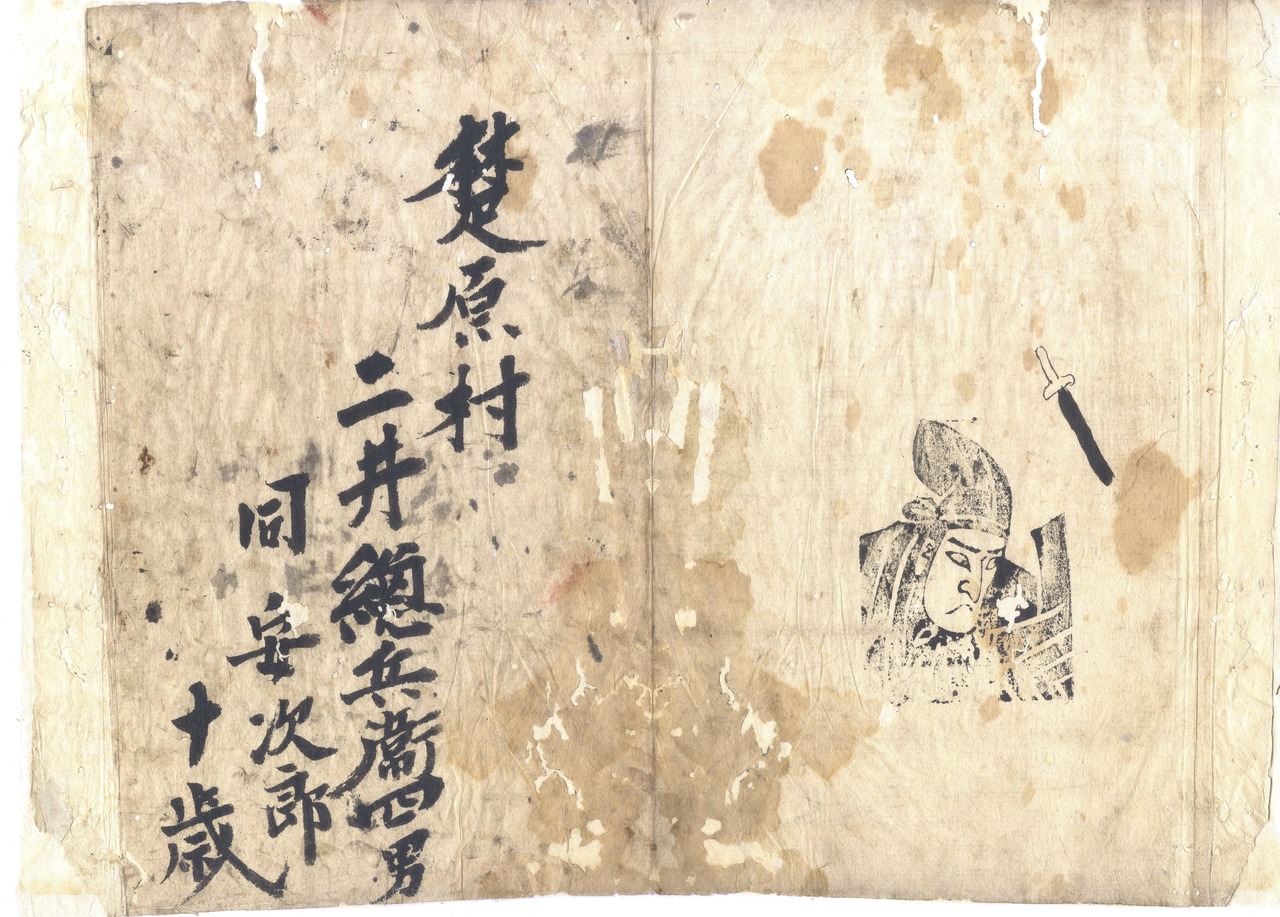 楚原村
二井總兵衛四男
同安次郎
十歳